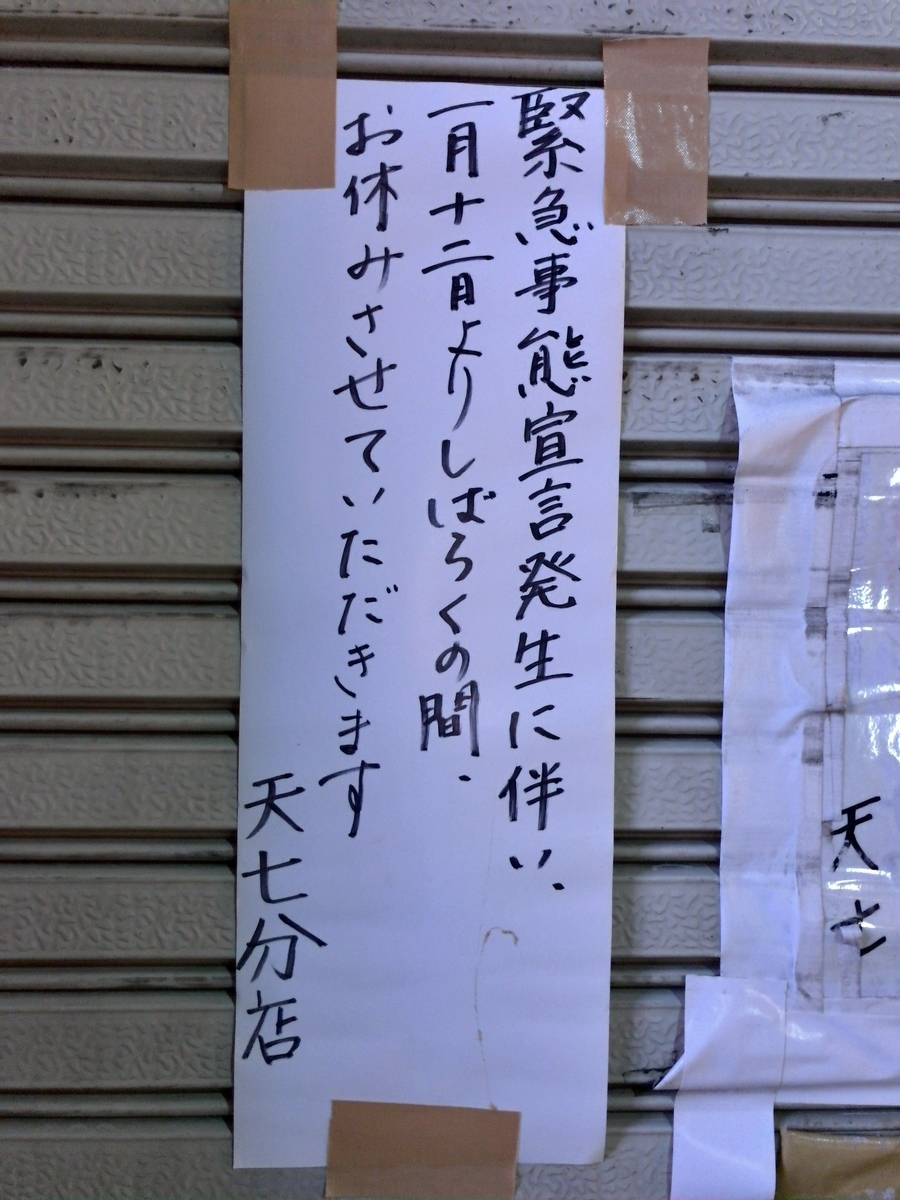 緊急事態宣言発生に伴い、
一月十二日よりしばらくの間、
お休みさせていただきます
天七分店
天